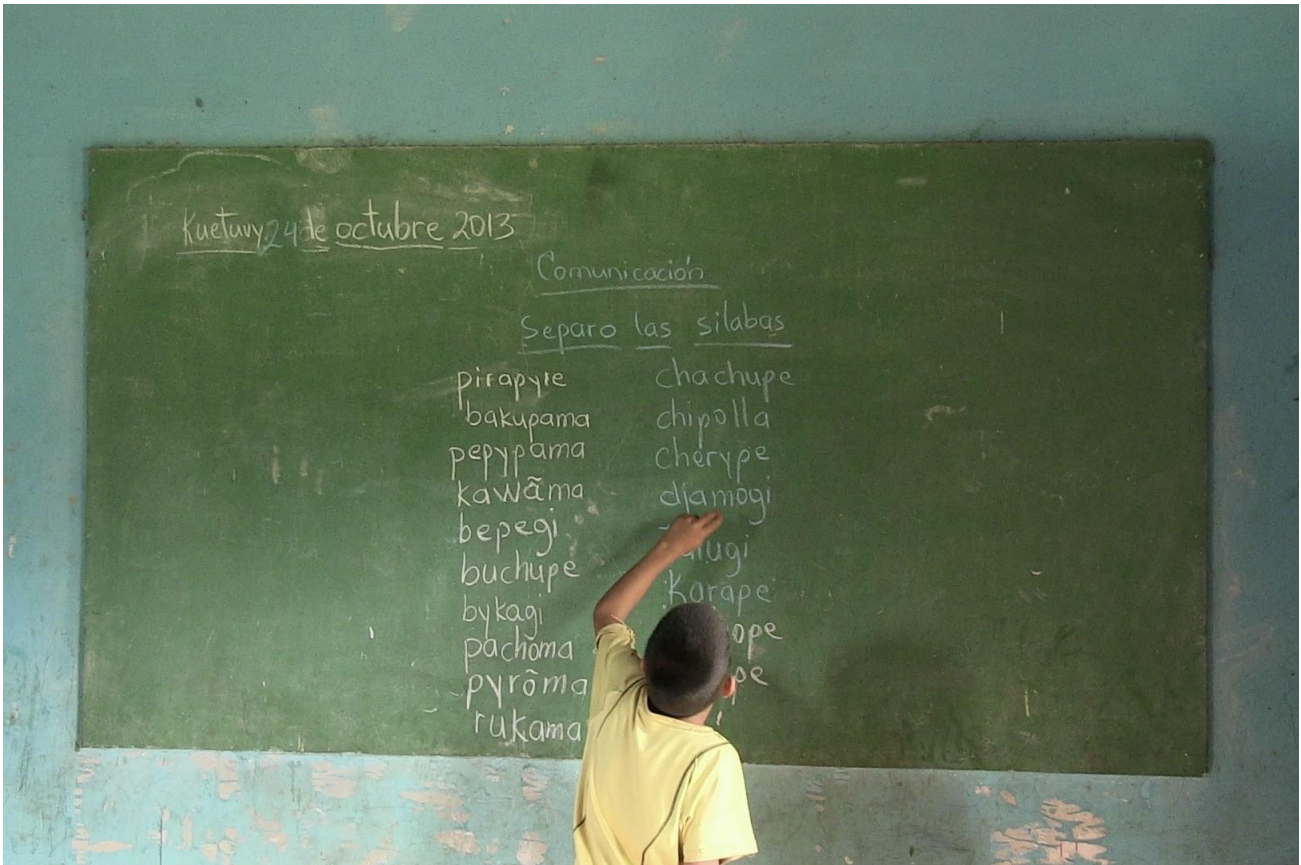 Kuetuvy 24 de octubre 2013
Comunicación
Separo las silabas
pirapyre
bakupama
pepypama
kawãma
bepegi
buchupe
bykagi
pachoma
pyrõma
rukama
chachupe
chipolla
cherype
djamogi
karape